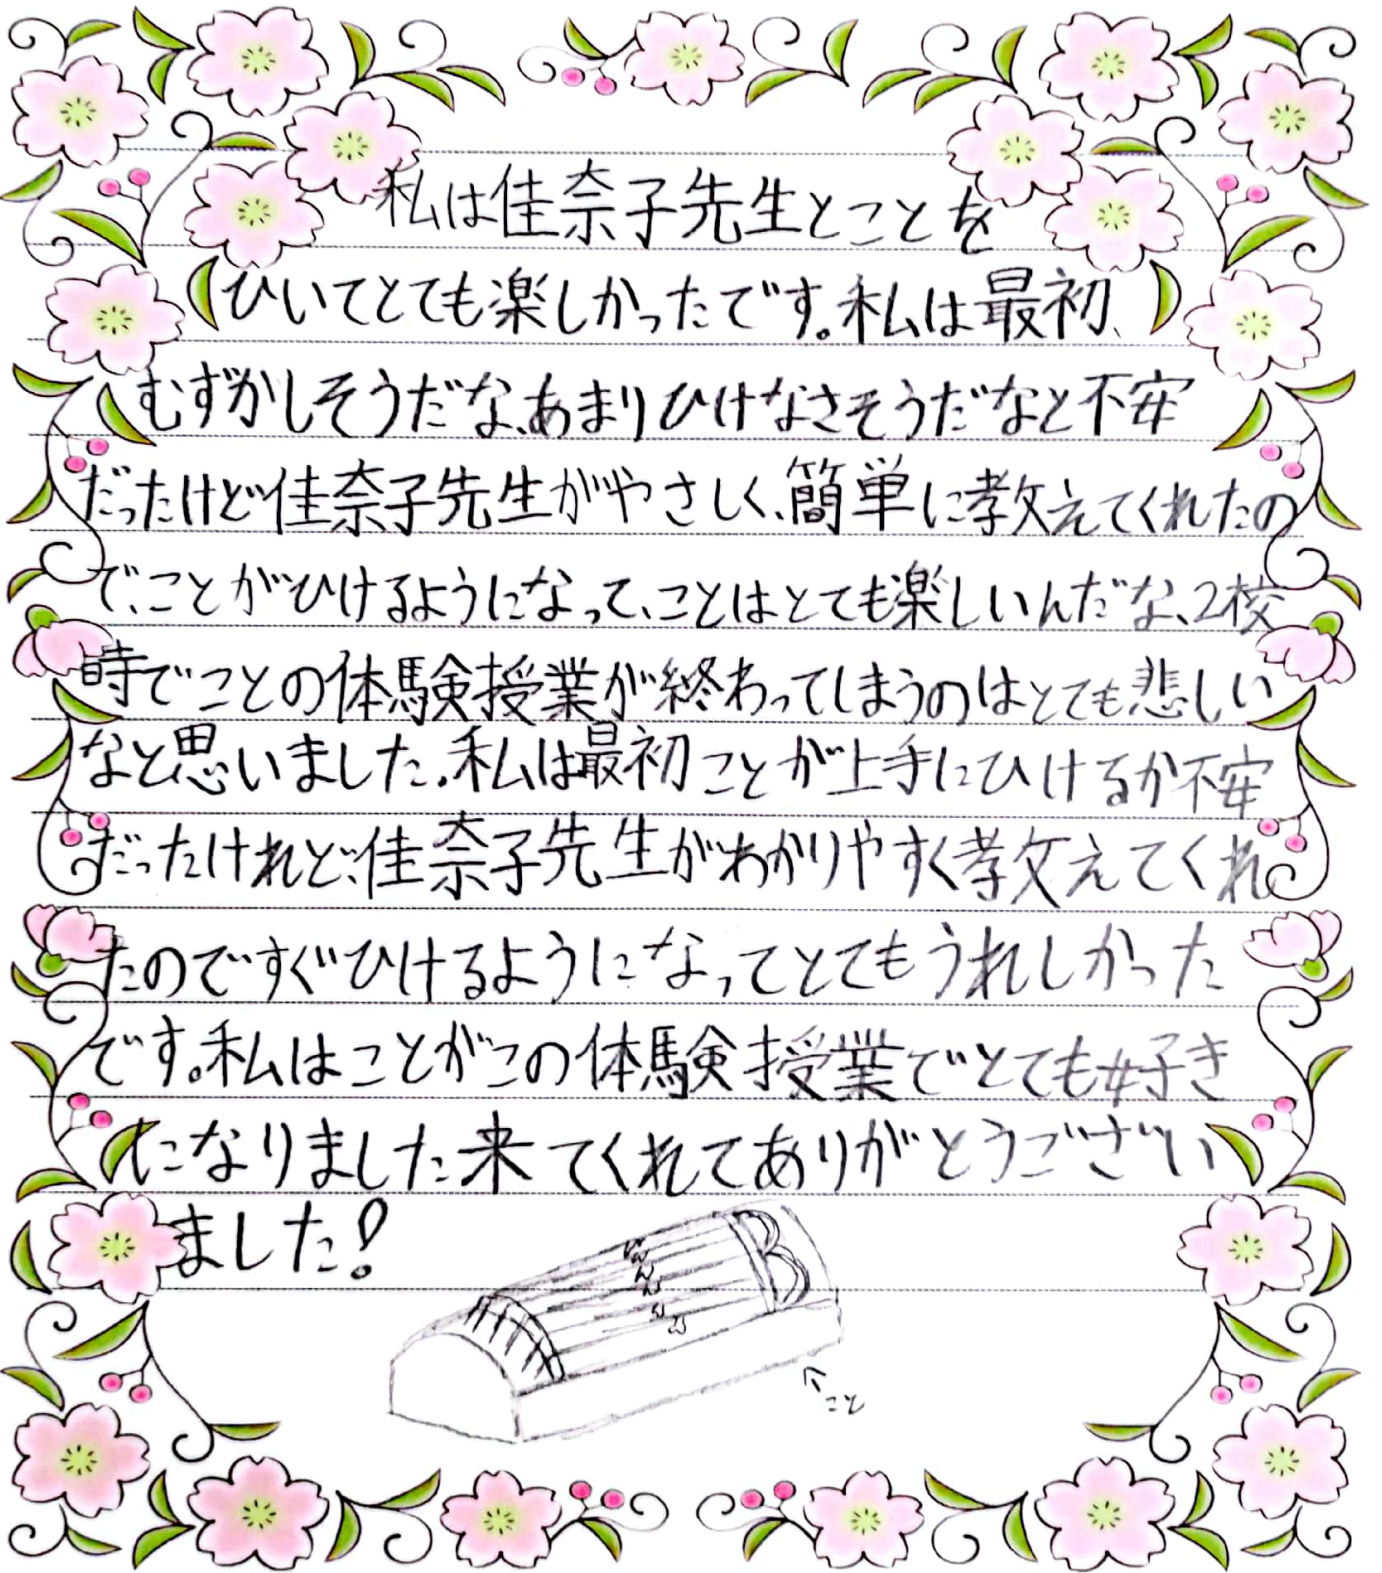 私は佳奈子先生とことを
ひいてとても楽しかったです。私は最初、
むずかしそうだな、あまりひけなさそうだなと不安
だったけど佳奈子先生がやさしく、簡単に教えてくれたの
で、ことがひけるようになって、ことはとても楽しいんだな、2校
時でことの体験授業が終わってしまうのはとても悲しい
なと思いました。私は最初ことが上手にひけるか不安
だったけれど、佳奈子先生がわかりやすく教えてくれ
たのですぐひけるようになってとてもうれしかった
です。私はことがこの体験授業でとても好き
になりました来てくれてありがとうござい
ました!
こと